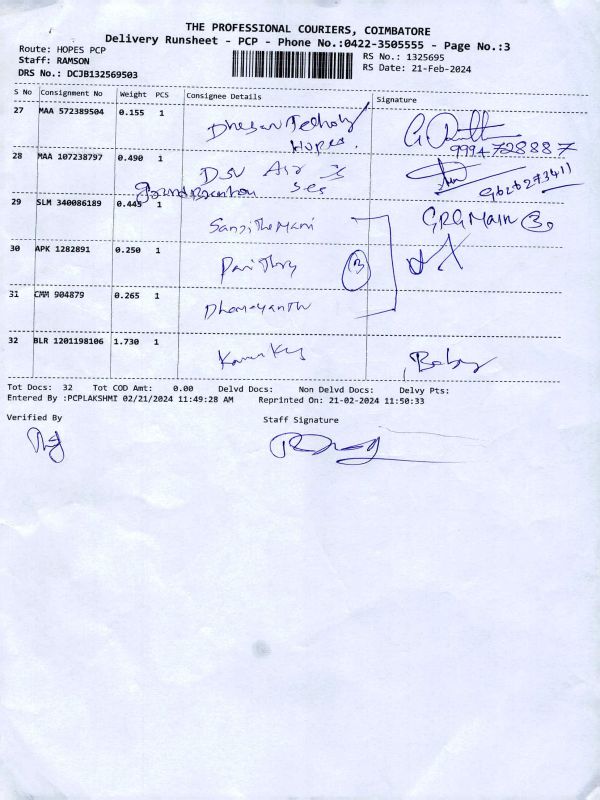 THE PROFESSIONAL COURIERS, COIMBATORE
Delivery Runsheet - PCP - Phone No.:0422-3505555 - Page No.:3
Route: HOPES PCP
RS No.: 1325695
Staff: RAMSON
RS Date: 21-Feb-2024
DRS No.: DCJB132569503
S No Consignment No Weight PCS Consignee Details Signature
27 MAA 572389504 0.155 1
Hopes.
28 MAA 107238797 0.490 1 DSV Air
9626273411
29 SLM 340086189 0.445 1 GRG Main
30 APK 1282891 0.250 1
31 CMM 904879 0.265 1
32 BLR 1201198106 1.730 1
Tot Docs: 32 Tot COD Amt: 0.00 Delvd Docs: Non Delvd Docs: Delvy Pts:
Entered By :PCPLAKSHMI 02/21/2024 11:49:28 AM Reprinted On: 21-02-2024 11:50:33
Verified By Staff Signature